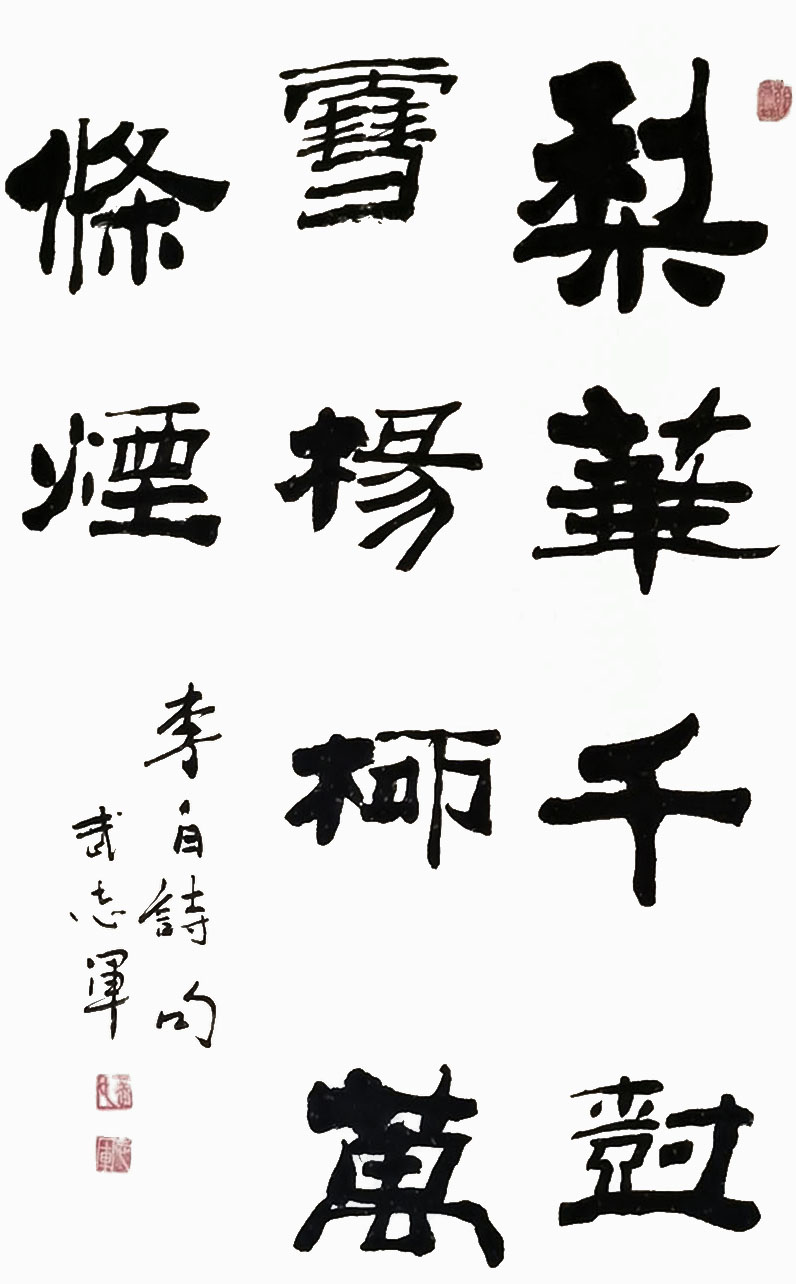 梨華千樹
雪楊柳萬
條煙
李白詩句
武志軍